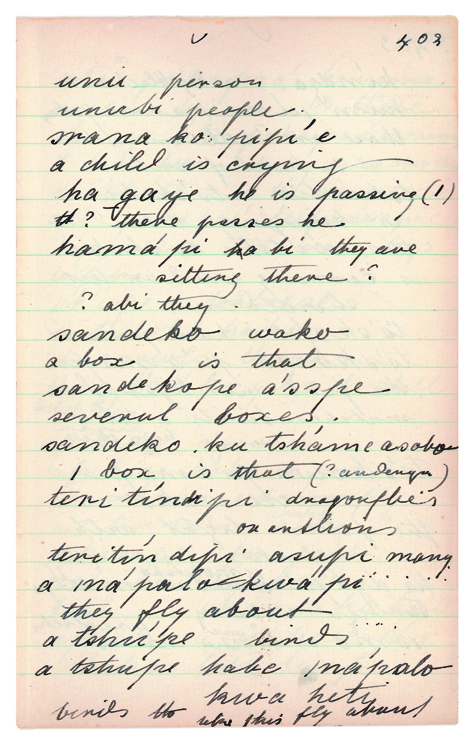 403
unii person
uniibi people.
srana ko pipi'e
a child is crying
ha gaye he is passing (1)
tt? there passes he
hamápi ha bi they are
sitting there ?
? abi they
sandeko wako
a box is that
sandekope ásspe
several boxes.
sandeko . ku tsháme asobo
1 box is that (? andenya)
teri tíndipi dragonflies
or antlions
teritíndipi asupi many
a nápalo kwápi . . . .
they fly about
a tshúpe birds
a tshupe habe nápalo
kwa heti
birds tto like this fly about